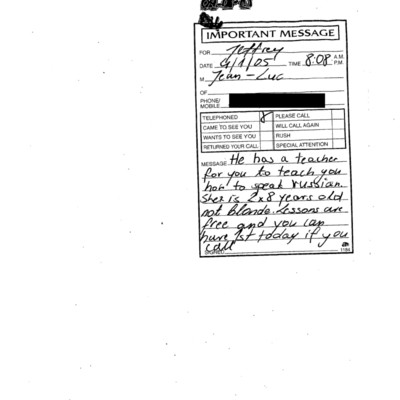 IMPORTANT MESSAGE
FOR Jeffrey
DATE 4/1/05 TIME 8:08 A.M. P.M.
M Jean-Luc
OF
PHONE/
MOBILE
TELEPHONED PLEASE CALL
CAME TO SEE YOU WILL CALL AGAIN
WANTS TO SEE YOU RUSH
RETURNED YOUR CALL SPECIAL ATTENTION
MESSAGE He has a teacher
for you to teach you
how to speak russian.
She is 2x8 years old
not blonde. Lessons are
free and you can
have 1st today if you
call
SIGNED 1184